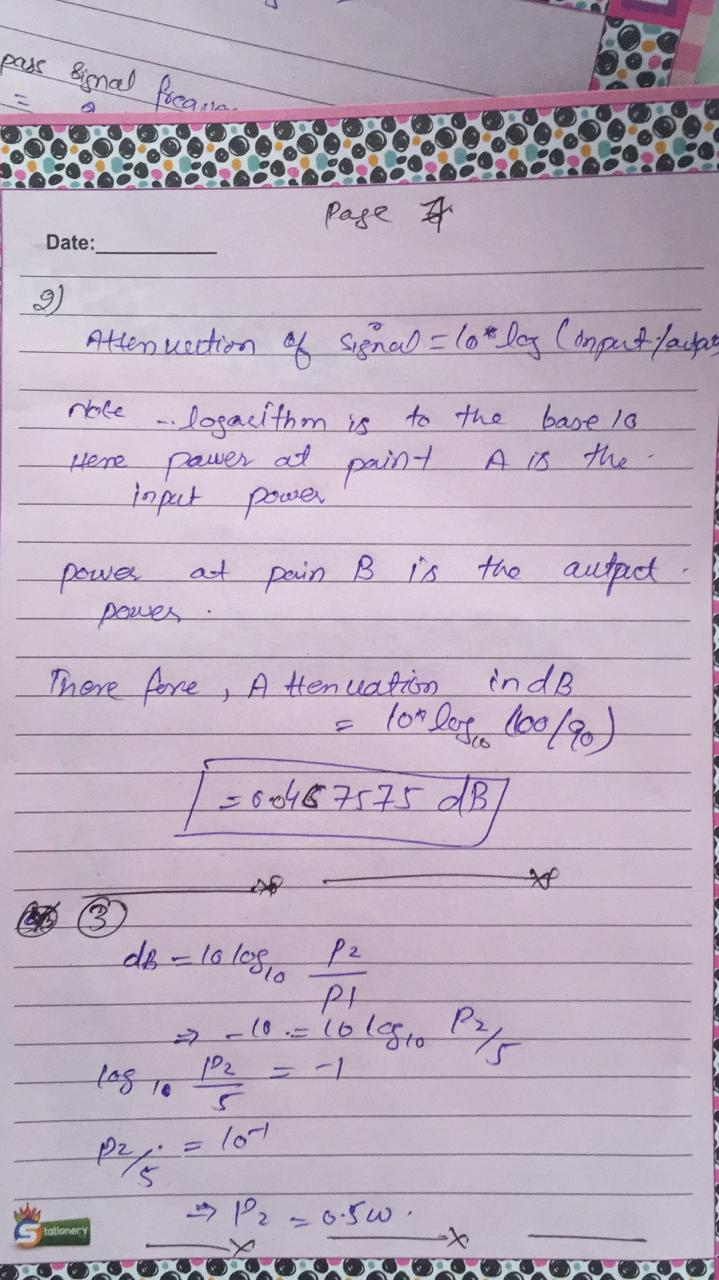 pass signal frequ
=
Page 7
Date:
2)
Attenuection of signal = 10* log (input/outpu
Note - logarithm is to the base 10
Here power at paint A is the
input power
power at pain B is the autput
power.
There fore, Attenuation in dB
= 10* log₁₀ (100/90)
= 0.0457575 dB
③
dB = 10 log₁₀ P2/P1
⇒ -10 = 10 log₁₀ P2/5
log₁₀ P2/5 = -1
P2/5 = 10⁻¹
⇒ P2 = 0.5w.
Stationery